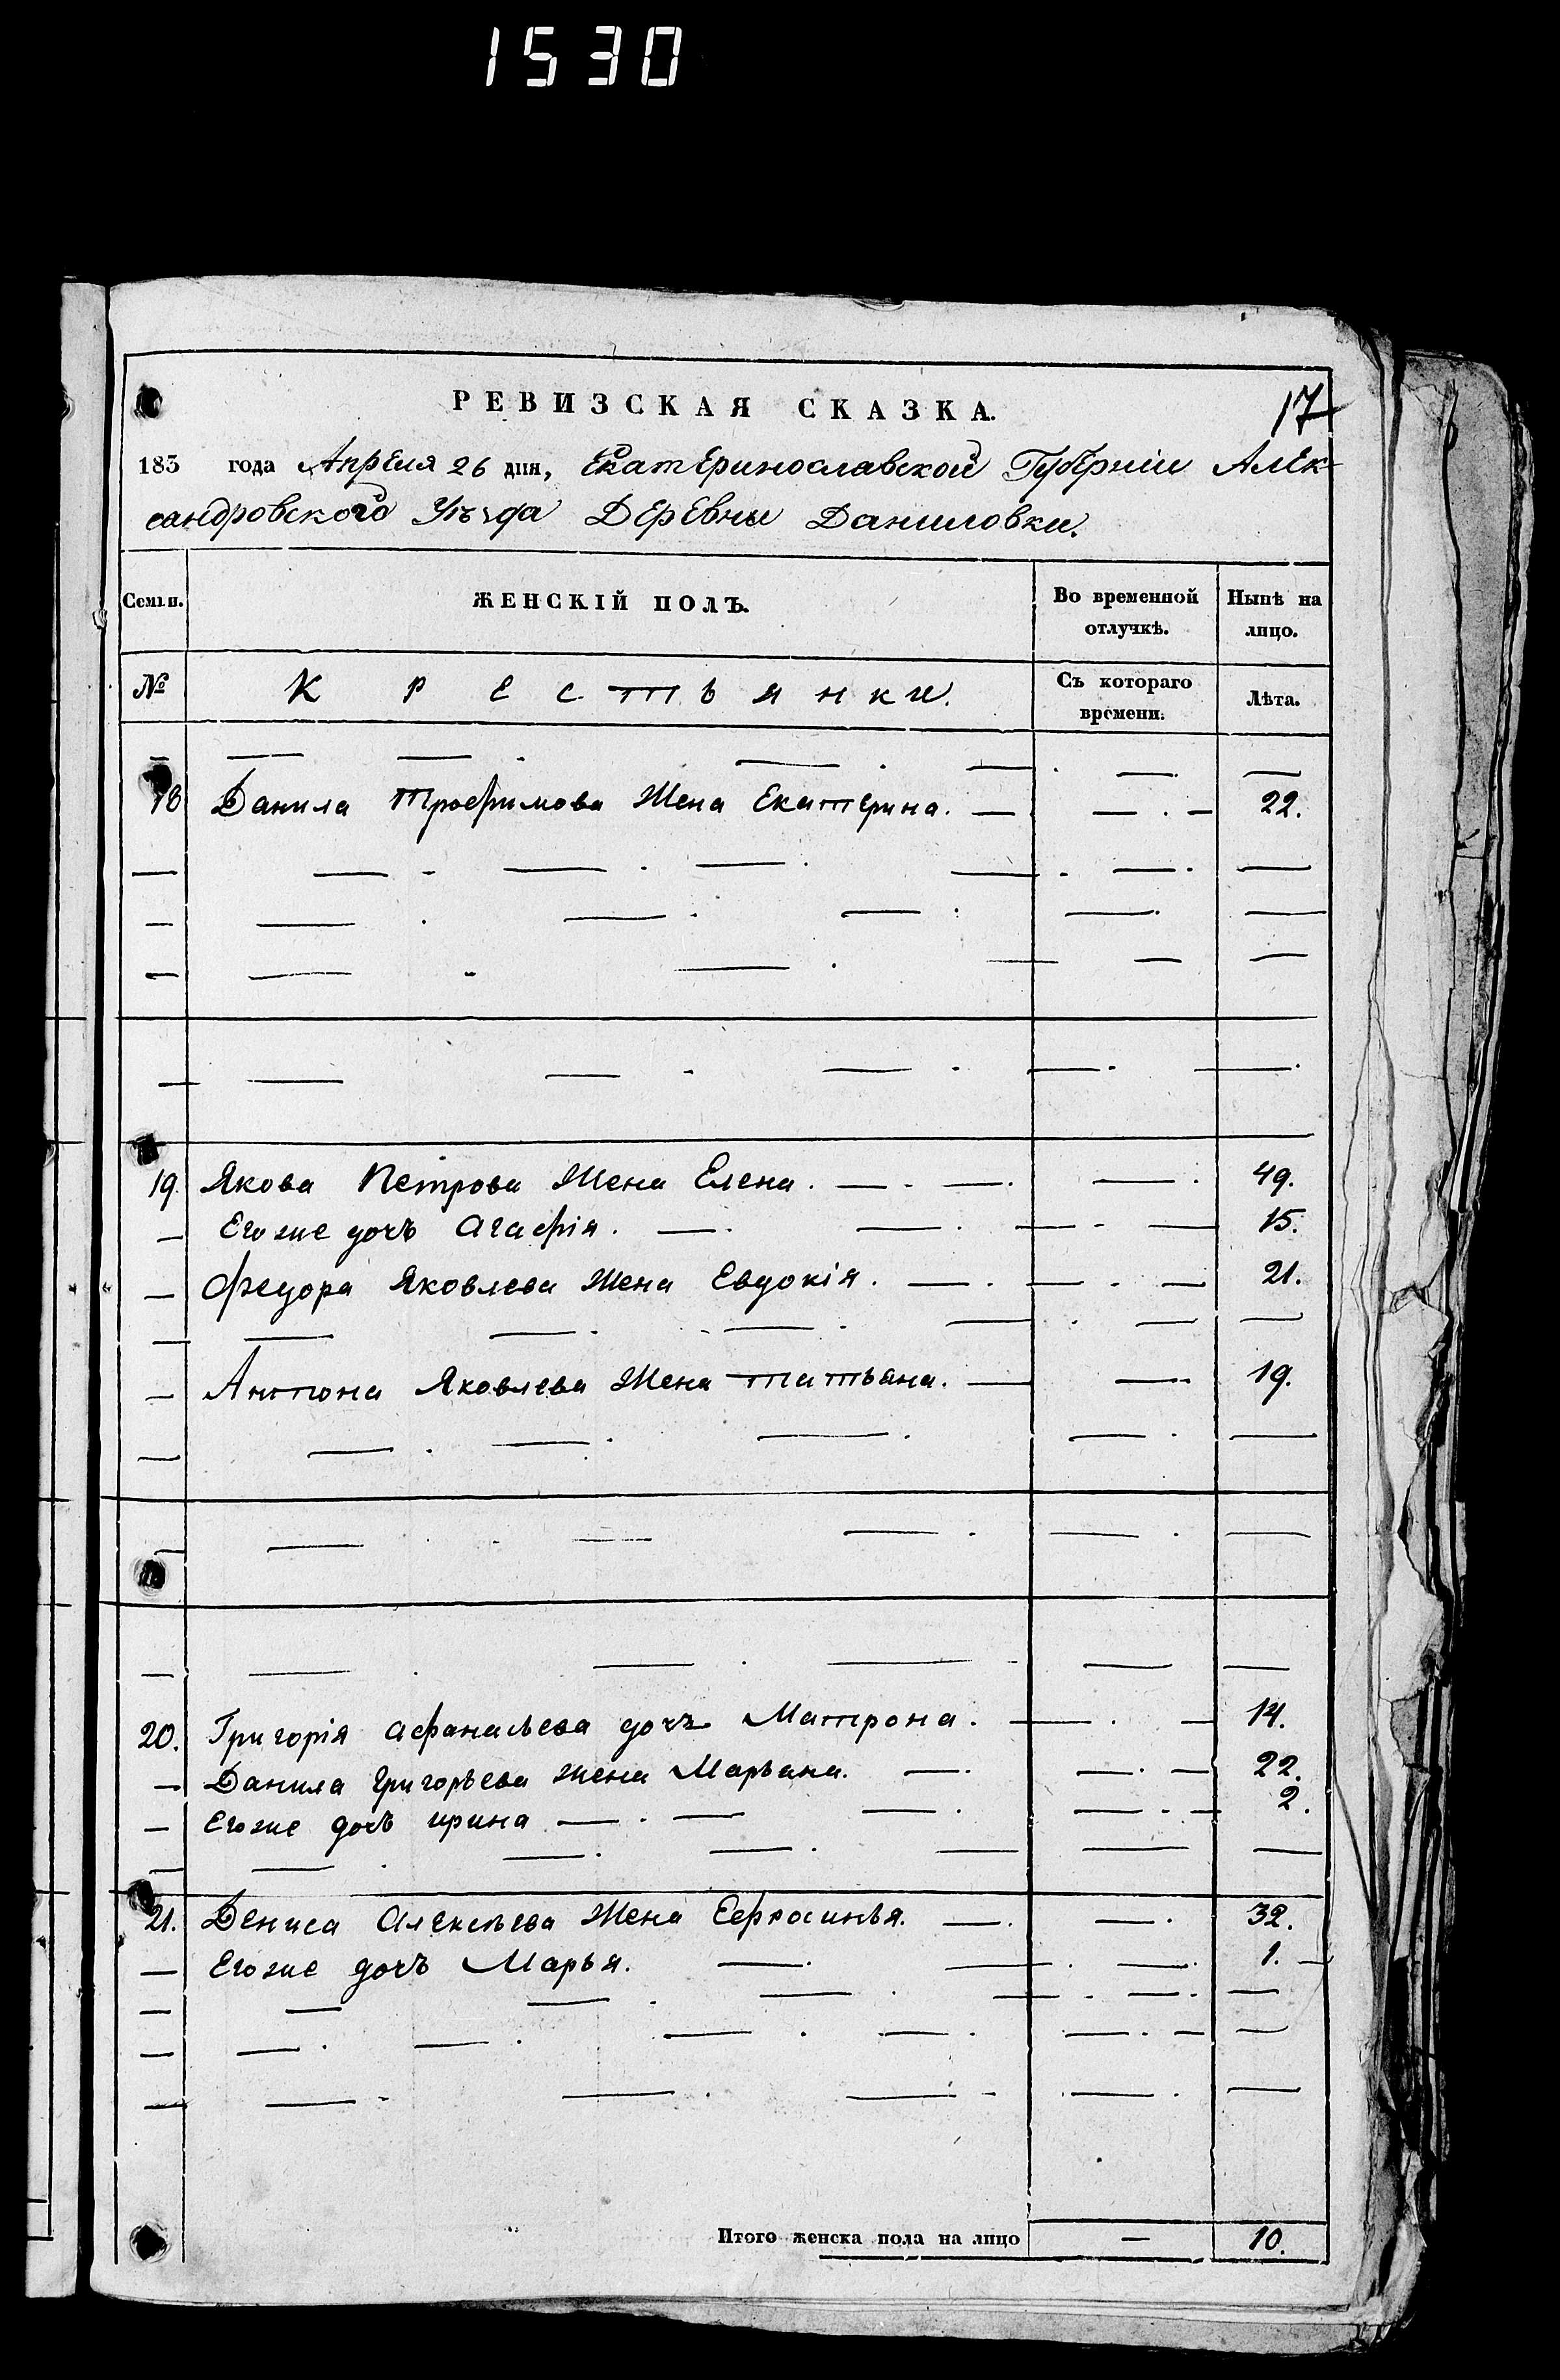 1530
РЕВИЗСКАЯ СКАЗКА.
17
183 года Апреля 26 дня, Екатеринославской Губерніи Алек-
сандровского Уѣзда Деревни Даниловки.
Семьи. ЖЕНСКІЙ ПОЛЪ. Во временной отлучкѣ. Нынѣ на лицо.
№ Крестьянки. Съ котораго времени. Лѣта.
18 Данила Трофимова Жена Екатерина. 22.
19. Якова Петрова Жена Елена. 49.
Егоже дочь Агафія. 15.
Федора Яковлева Жена Евдокія. 21.
Антона Яковлева Жена Татьяна. 19.
20. Григорія Афанасьева дочь Матрона. 14.
Данила Григорьева жена Марьяна. 22.
Егоже дочь Ирина 2.
21. Дениса Алексѣева Жена Ефросинья. 32.
Егоже дочь Марья. 1.
Итого женска пола на лицо — 10.